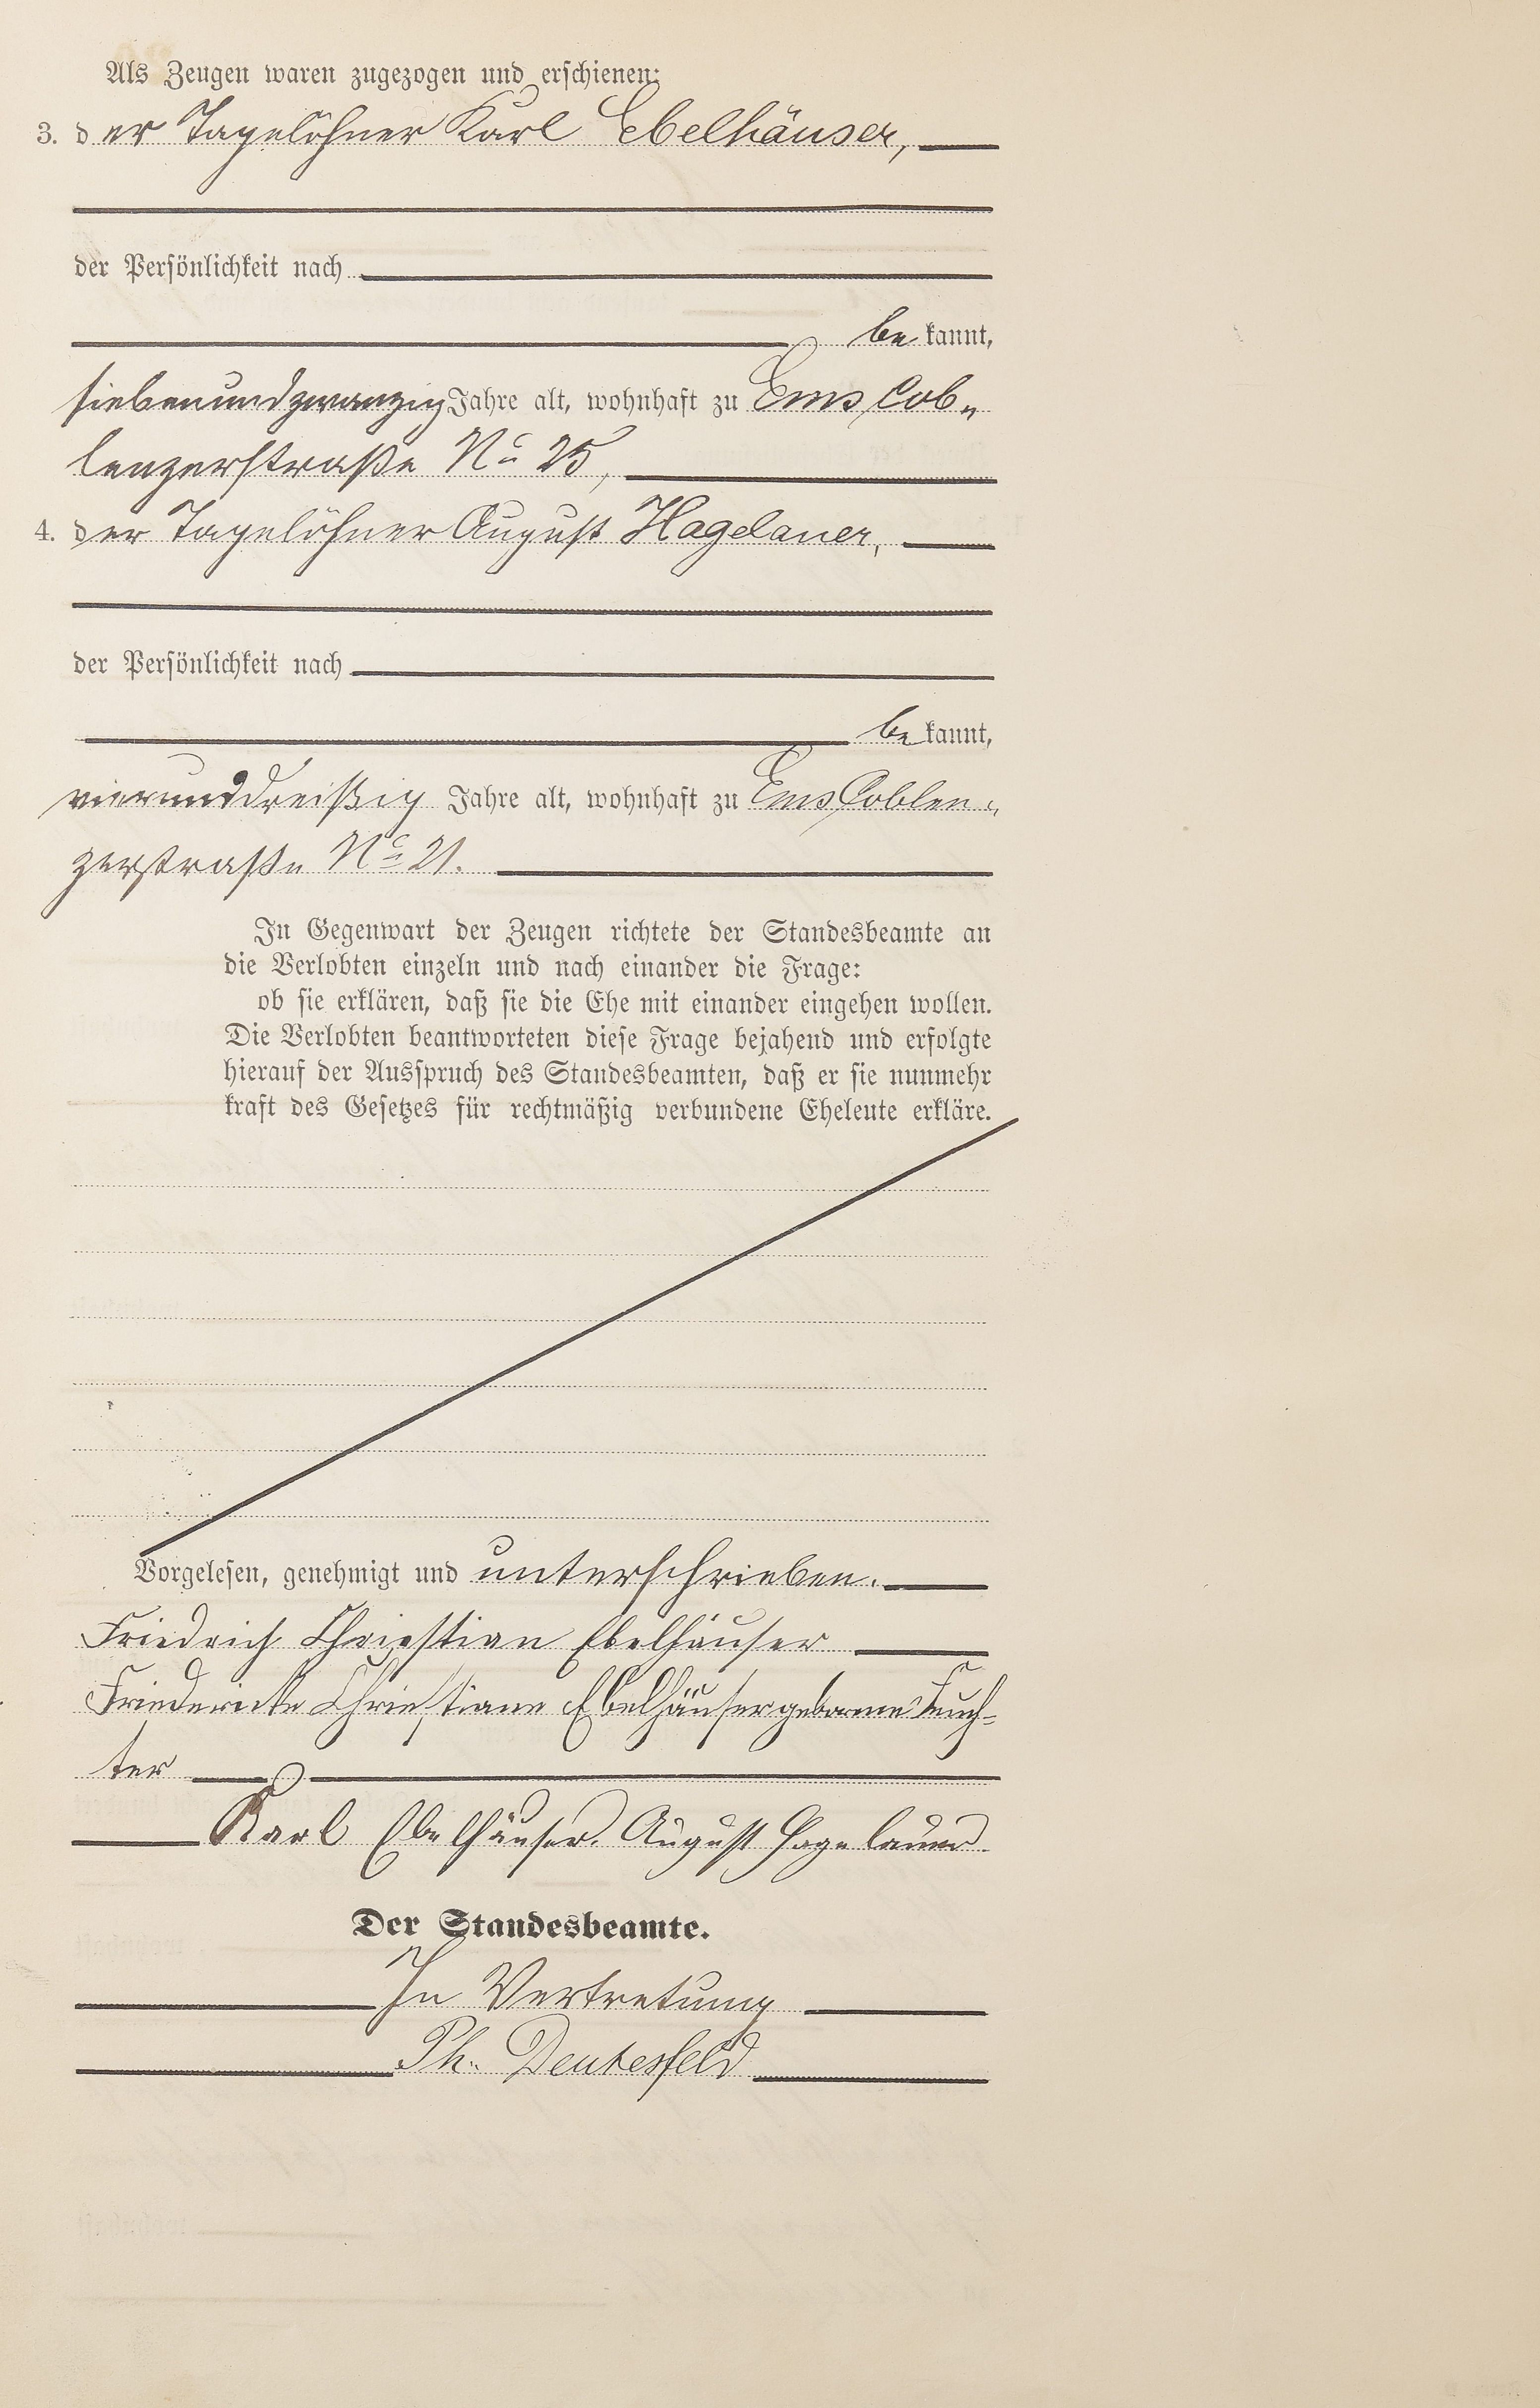 Als Zeugen waren zugezogen und erschienen:
3. der Tagelöhner Karl Ebelhäuser,
der Persönlichkeit nach
bekannt,
siebenundzwanzig Jahre alt, wohnhaft zu Ems Cob„
lenzerstraße No 25,
4. der Tagelöhner August Hagelauer,
der Persönlichkeit nach
bekannt,
vierunddreißig Jahre alt, wohnhaft zu Ems Coblen„
zerstraße No 21.
In Gegenwart der Zeugen richtete der Standesbeamte an
die Verlobten einzeln und nach einander die Frage:
ob sie erklären, daß sie die Ehe mit einander eingehen wollen.
Die Verlobten beantworteten diese Frage bejahend und erfolgte
hierauf der Ausspruch des Standesbeamten, daß er sie nunmehr
kraft des Gesetzes für rechtmäßig verbundene Eheleute erkläre.
Vorgelesen, genehmigt und unterschrieben.
Friedrich Christian Ebelhäuser
Christiane Ebelhäuser geborene Feuch-
ter
Karl Ebelhäuser. August Hagelauer
Der Standesbeamte.
In Vertretung
Ph. Deutesfeld